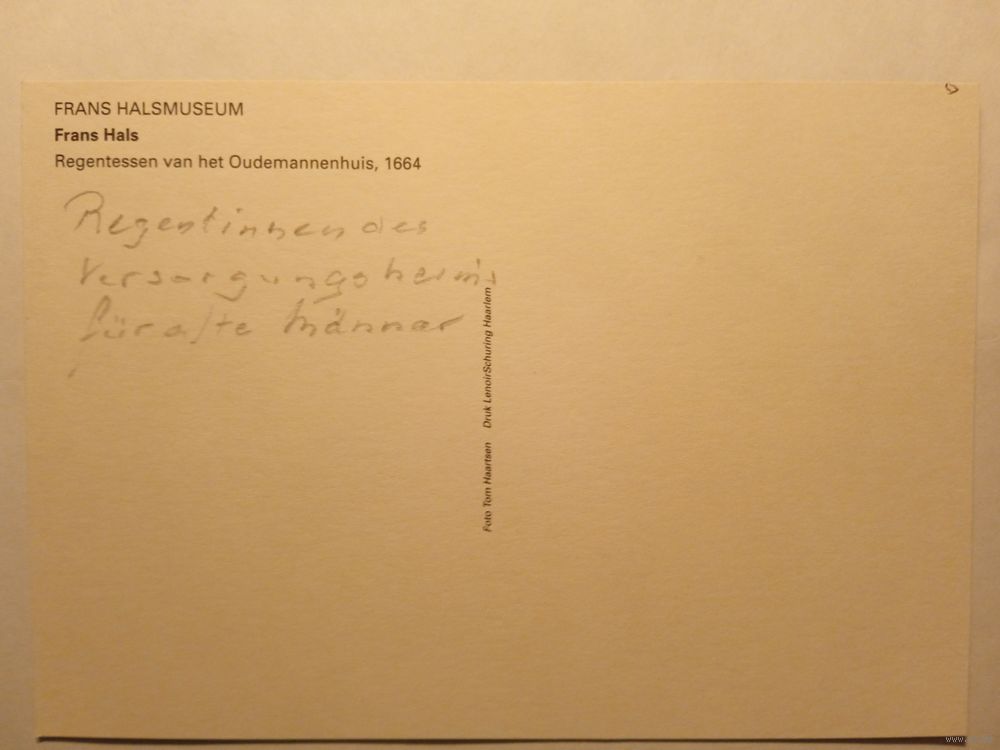 FRANS HALSMUSEUM
Frans Hals
Regentessen van het Oudemannenhuis, 1664
Regentinnen des
Versorgungsheims
für alte Männer
Foto Tom Haartsen Druk LenoirSchuring Haarlem